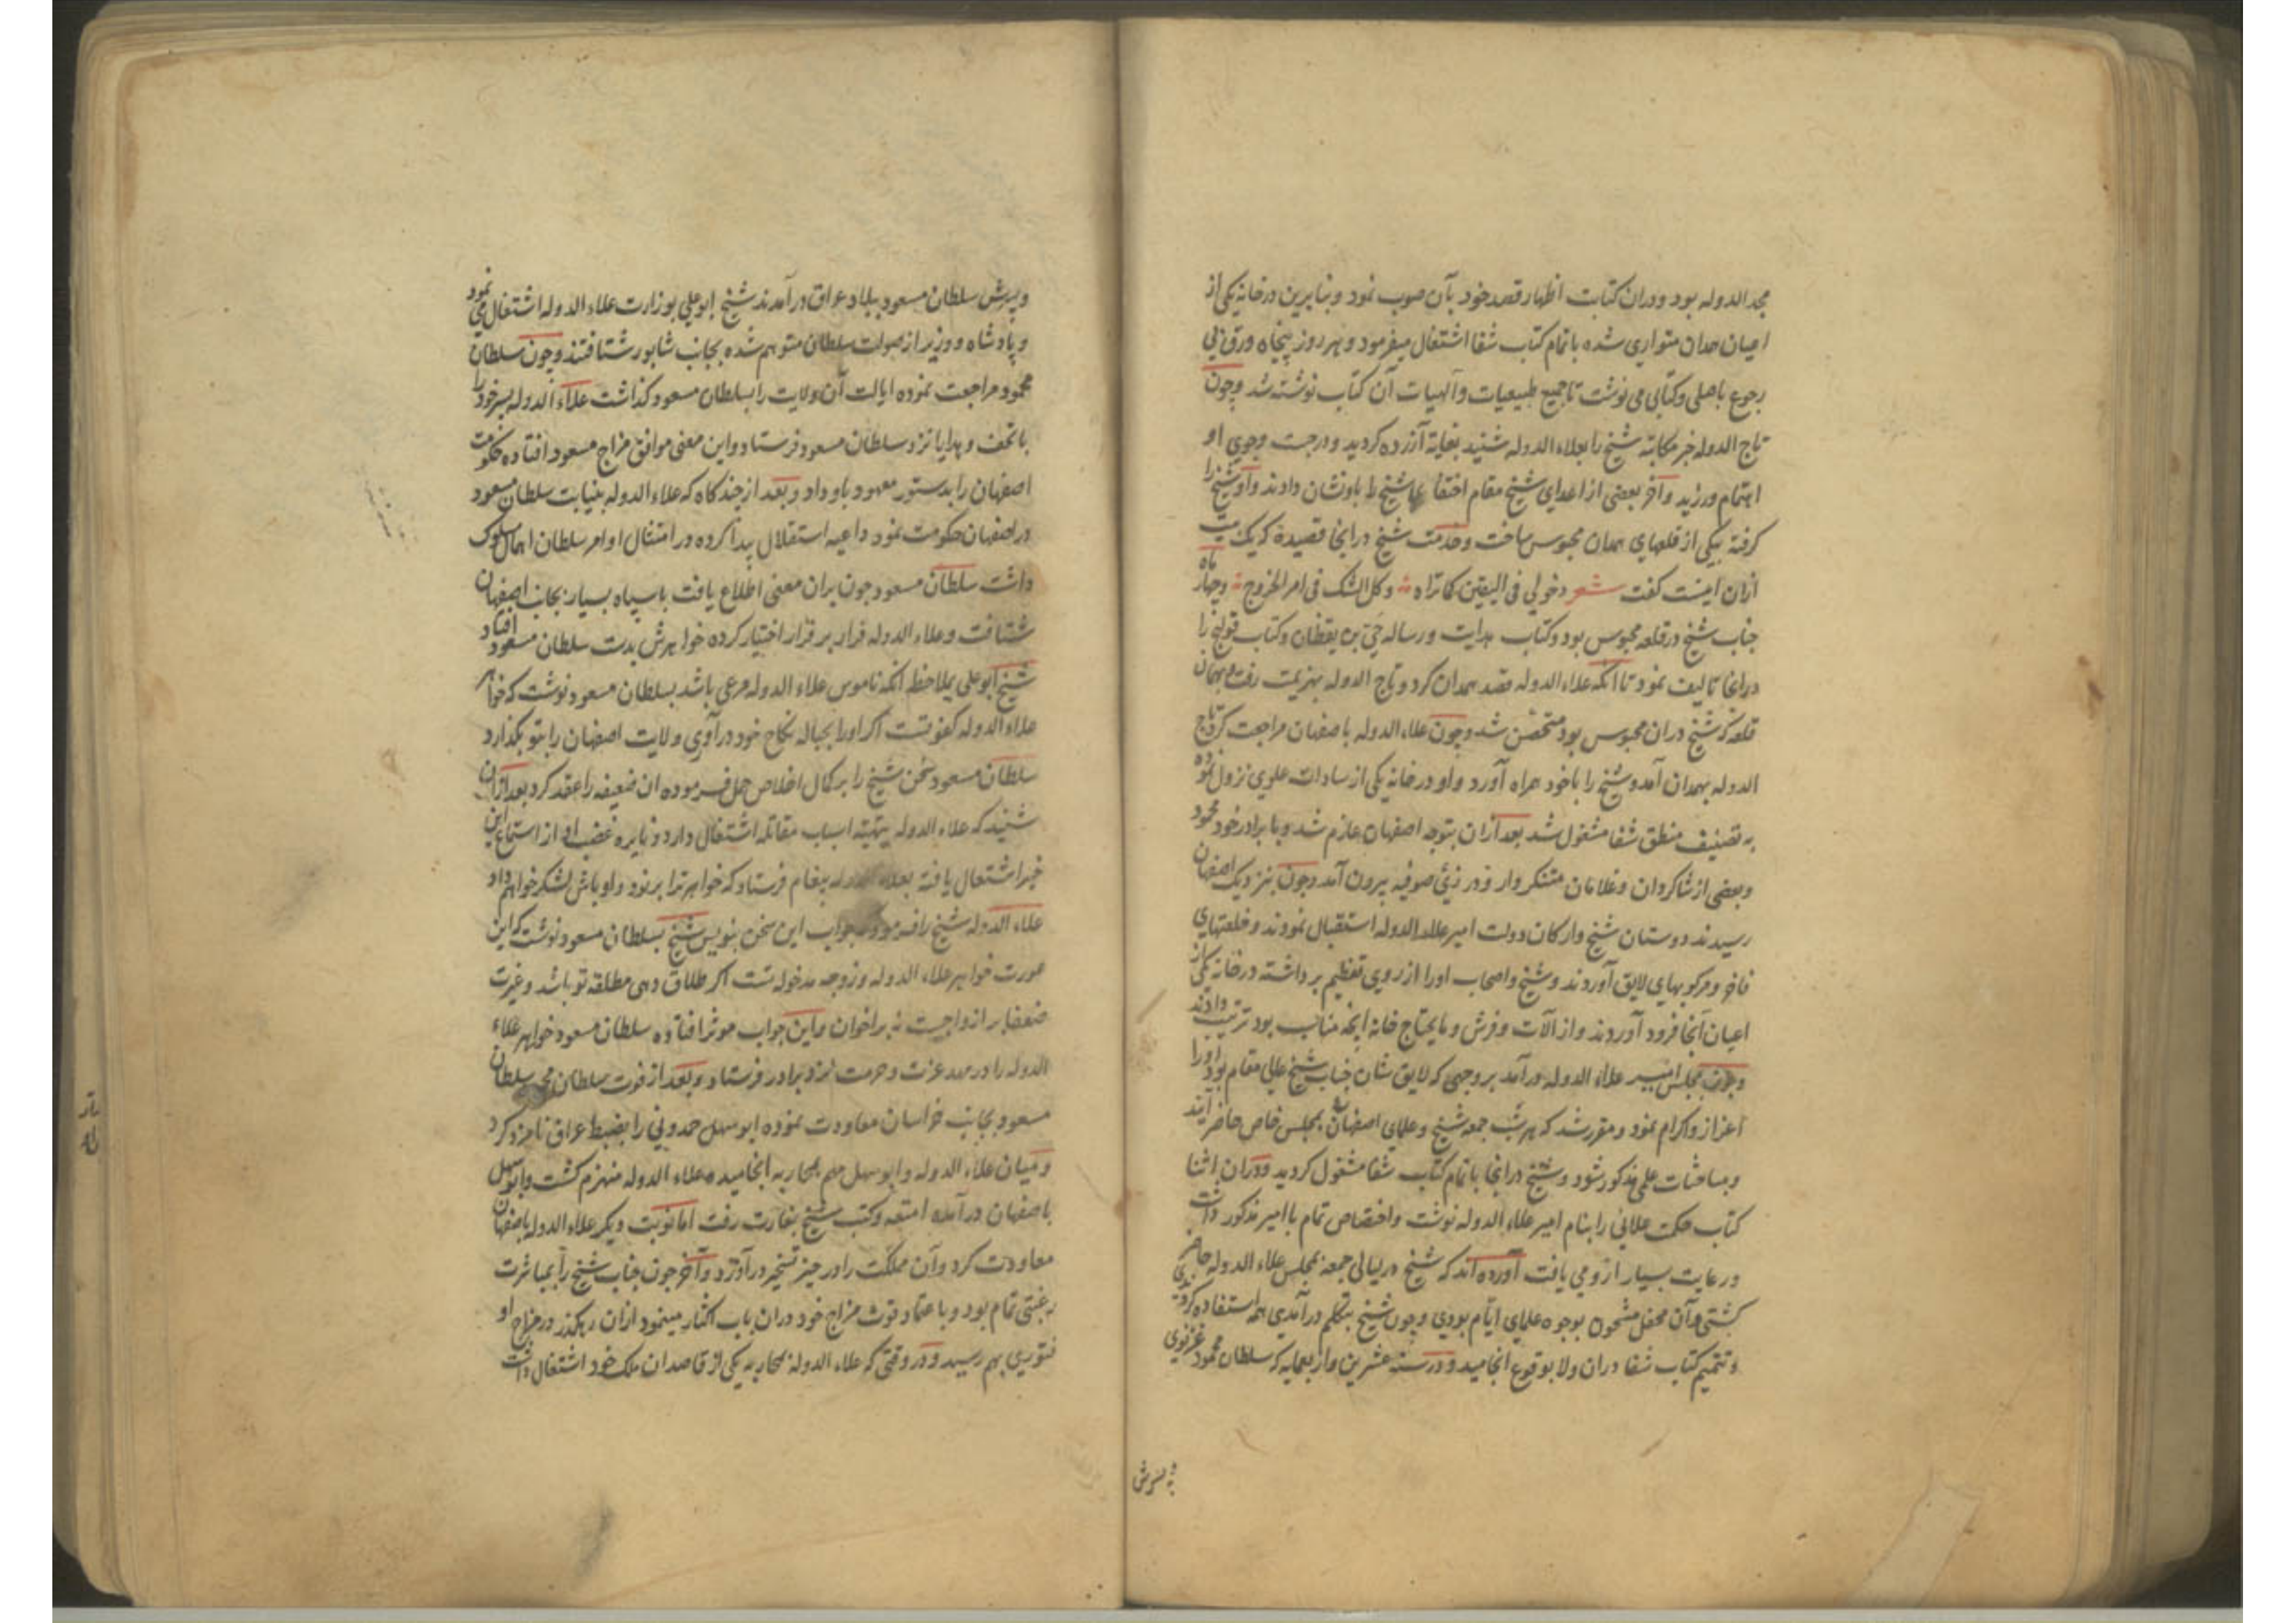 مجد الدوله بود ودران کتابت اظهار قصد خود بآن صوب نمود و بنابرین درخانه یکی از
اعیان همدان متواری شده باتمام کتاب شفا اشتغال میفرمود و هر روز پنجاه ورق بی
رجوع باصلی وکتابی می نوشت تا جمیع طبیعیات وآلهیات آن کتاب نوشته شد وچون
تاج الدوله خبر مکاتبه شیخ را بعلاء الدوله شنید بغایة آزرده کردید ودرجست وجوی او
اهتمام ورزید وآخر بعضی از اعدای شیخ مقام اختفا شیخ را باو نشان دادند واو شیخ را
کرفته بیکی از قلعهای همدان محبوس ساخت وخدمت شیخ درانجا قصیده که یک بیت
ازان اینست کفت شعر دخولی فی الیقین کما تراه وکل الشک فی امر الخروج وچهار ماه
جناب شیخ درقلعه محبوس بود وکتاب هدایت ورساله حی بن یقظان وکتاب قولنج را
درانجا تالیف نمود تا آنکه علاء الدوله قصد همدان کرد وتاج الدوله بهزیمت رفت وبهمان
قلعه که شیخ دران محبوس بود متحصن شد وچون علاء الدوله باصفهان مراجعت کرد تاج
الدوله بهمدان آمد وشیخ را باخود همراه آورد واو درخانه یکی از سادات علوی نزول نموده
به تصنیف منطق شفا مشغول شد بعد ازان بتوجه اصفهان عازم شد وبا برادر خود محمود
وبعضی از شاکردان وغلامان متنکروار ودر زئ صوفیه بیرون آمد وچون بنزدیک اصفهان
رسیدند دوستان شیخ وارکان دولت امیر علاء الدوله استقبال نمودند وخلعتهای
فاخر ومرکوبهای لایق آوردند وشیخ واصحاب اورا از روی تعظیم برداشته درخانه یکی از
اعیان آنجا فرود آوردند واز آلات وفرش وما یحتاج خانه آنچه مناسب بود ترتیب دادند
وچون بمجلس امیر علاء الدوله درآمد بروجهی که لایق شان جناب شیخ عالی مقام بود اورا
اعزاز واکرام نمود ومقرر شد که هر شب جمعه شیخ وعلمای اصفهان بمجلس خاص حاضر آیند
ومباحثات علمی مذکور شود وشیخ درانجا باتمام کتاب شفا مشغول کردید ودران اثنا
کتاب حکمت علائی را بنام امیر علاء الدوله نوشت واختصاص تمام باامیر مذکور داشت
ورعایت بسیار ازو می یافت آورده اند که شیخ درلیالی جمعه بمجلس علاء الدوله حاضر
کشتی وآن محفل مشحون بوجوه علمای ایام بودی وچون شیخ بتکلم درآمدی همه استفاده کردندی
وتتمیم کتاب شفا دران ولا بوقوع انجامید ودرسنه عشرین واربعمایه که سلطان محمود غزنوی
و پسرش
وپسرش سلطان مسعود ببلاد عراق درآمدند شیخ ابوعلی بوزارت علاء الدوله اشتغال می نمود
وپادشاه ووزیر از صولت سلطان متوهم شده بجانب شابور شتافتند وچون سلطان
محمود مراجعت نموده ایالت آن ولایت را بسلطان مسعود کذاشت علاء الدوله پسر خود را
باتحف وهدایا نزد سلطان مسعود فرستاد واین معنی موافق مزاج مسعود افتاده حکومت
اصفهان را بدستور معهود باو داد وبعد از چندکاه که علاء الدوله بنیابت سلطان مسعود
دراصفهان حکومت نمود داعیه استقلال پیدا کرده در امتثال اوامر سلطان اهمال سلوک
داشت سلطان مسعود چون بران معنی اطلاع یافت باسپاه بسیار بجانب اصفهان
شتافت وعلاء الدوله فرار بر قرار اختیار کرده خواهرش بدست سلطان مسعود افتاد
شیخ ابوعلی بملاحظه آنکه ناموس علاء الدوله مرعی باشد بسلطان مسعود نوشت که خواهر
علاء الدوله کفو تست اکر اورا بحباله نکاح خود درآوری ولایت اصفهان را بتو بکذارد
سلطان مسعود سخن شیخ را بر کمال اخلاص حمل فرموده ان ضعیفه را عقد کرد بعد ازان
شنید که علاء الدوله بتهیئه اسباب مقاتله اشتغال دارد ونایره غضب او از استماع این
خبر اشتعال یافته بعلاء الدوله پیغام فرستاد که خواهر ترا برنود واوباش لشکر خواهم داد
علاء الدوله شیخ را فرمود که جواب این سخن بنویس شیخ بسلطان مسعود نوشت که این
عورت خواهر علاء الدوله وزوجه مدخوله تست اکر طلاق دهی مطلقه تو باشد وغیرت
ضعفا بر ازواجست نه بر اخوان واین جواب موثر افتاده سلطان مسعود خواهر علاء
الدوله را در مهد عزت وحرمت نزد برادر فرستاد وبعد از فوت سلطان محمود سلطان
مسعود بجانب خراسان معاودت نموده ابو سهل حمدونی را بضبط عراق نامزد کرد
ومیان علاء الدوله وابو سهل مهم بمحاربه انجامیده علاء الدوله منهزم کشت وابو سهل
باصفهان درآمده امتعه وکتب شیخ بغارت رفت اما نوبت دیکر علاء الدوله باصفهان
معاودت کرد وآن مملکت را در حیز تسخیر درآورد وآخر چون جناب شیخ را بمباشرت
رغبتی تمام بود وباعتماد قوت مزاج خود دران باب اکثار مینمود ازان رهکذر درمزاج او
فتوری بهم رسید ودر وقتی که علاء الدوله بمحاربه یکی از قاصدان ملک خود اشتغال داشت